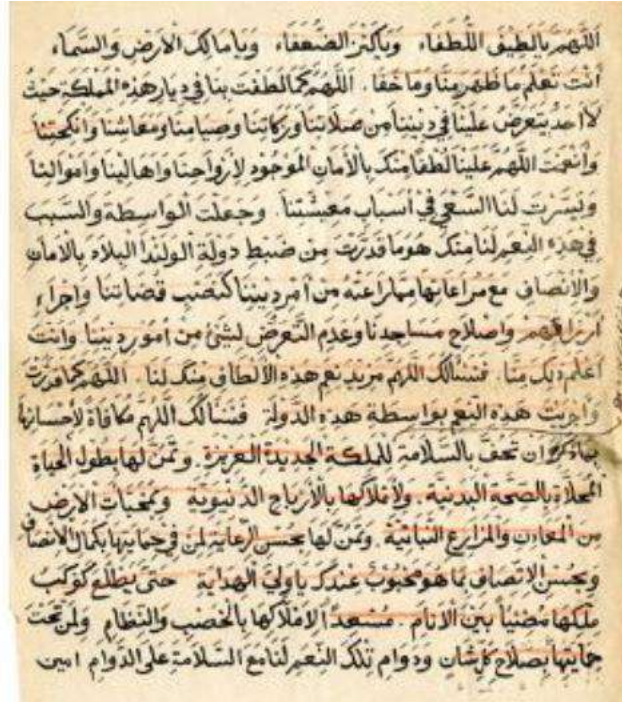 اللّهُمَّ يَا لَطِيفَ اللُّطَفَاءِ وَيَا كَنْزَ الضُّعَفَاءِ وَيَا مَالِكَ الْأَرْضِ وَالسَّمَاءِ
أَنْتَ تَعْلَمُ مَا ظَهَرَ مِنَّا وَمَا خَفَا. اللّهُمَّ كَمَا لَطَفْتَ بِنَا فِي دِيَارِ هٰذِهِ الْمَمْلَكَةِ حَيْثُ
لَا أَحَدَ يَتَعَرَّضُ عَلَيْنَا فِي دِينِنَا مِنْ صَلَاتِنَا وَزَكَاتِنَا وَصِيَامِنَا وَمَعَاشِنَا وَأَنْكِحَتِنَا
وَأَنْعَمْتَ اللّهُمَّ عَلَيْنَا لُطْفًا مِنْكَ بِالْأَمَانِ الْمَوْجُودِ لِأَرْوَاحِنَا وَأَهَالِينَا وَأَمْوَالِنَا
وَيَسَّرْتَ لَنَا السَّعْيَ فِي أَسْبَابِ مَعِيشَتِنَا. وَجَعَلْتَ الْوَاسِطَةَ وَالسَّبَبَ
فِي هٰذِهِ النِّعَمِ لَنَا مِنْكَ هُوَ مَا قَدَّرْتَ مِنْ ضَبْطِ دَوْلَةِ الْوَلَنْدَا الْبِلَادَ بِالْأَمَانِ
وَالْإِنْصَافِ مَعَ مُرَاعَاتِهَا مَا رَاعَتْهُ مِنْ أَمْرِ دِينِنَا كَنَصْبِ قُضَاتِنَا وَإِجْرَاءِ
أَرْزَاقِهِمْ وَإِصْلَاحِ مَسَاجِدِنَا وَعَدَمِ التَّعَرُّضِ لِشَيْءٍ مِنْ أُمُورِ دِينِنَا وَأَنْتَ
أَعْلَمُ بِكَ مِنَّا. فَنَسْأَلُكَ اللّهُمَّ مَزِيدَ نِعَمِ هٰذِهِ الْأَلْطَافِ مِنْكَ لَنَا. اللّهُمَّ كَمَا قَدَّرْتَ
وَأَجْرَيْتَ هٰذِهِ النِّعَمَ بِوَاسِطَةِ هٰذِهِ الدَّوْلَةِ فَنَسْأَلُكَ اللّهُمَّ مُكَافَاةً لِإِحْسَانِهَا
أَنْ تَحُفَّ بِالسَّلَامَةِ لِلْمَلِكَةِ الْجَدِيدَةِ الْعَزِيزَةِ. وَتَمُنَّ لَهَا بِطُولِ الْحَيَاةِ
الْمُحَلَّاةِ بِالصِّحَّةِ الْبَدَنِيَّةِ. وَلِأَمْلَاكِهَا بِالْأَرْبَاحِ الدُّنْيَوِيَّةِ وَمُخَبَّآتِ الْأَرْضِ
مِنَ الْمَعَادِنِ وَالْمَزَارِعِ النَّبَاتِيَّةِ. وَتَمُنَّ لَهَا بِحُسْنِ الرِّعَايَةِ لِمَنْ فِي حِمَايَتِهَا بِكَمَالِ الْإِنْصَافِ
وَبِحُسْنِ الْإِتِّصَافِ بِمَا هُوَ مَحْبُوبٌ عِنْدَكَ يَا وَلِيَّ الْهِدَايَةِ حَتَّى يَطْلَعَ كَوْكَبُ
مُلْكِهَا مُضِيئًا بَيْنَ الْأَنَامِ. مُسْعِدًا لِأَمْلَاكِهَا بِالْخَصْبِ وَالنِّظَامِ وَلِمَنْ تَحْتَ
حِمَايَتِهَا بِصَلَاحِ كُلِّ شَانٍ وَدَوَامِ تِلْكَ النِّعَمِ لَنَا مَعَ السَّلَامَةِ عَلَى الدَّوَامِ آمِينَ